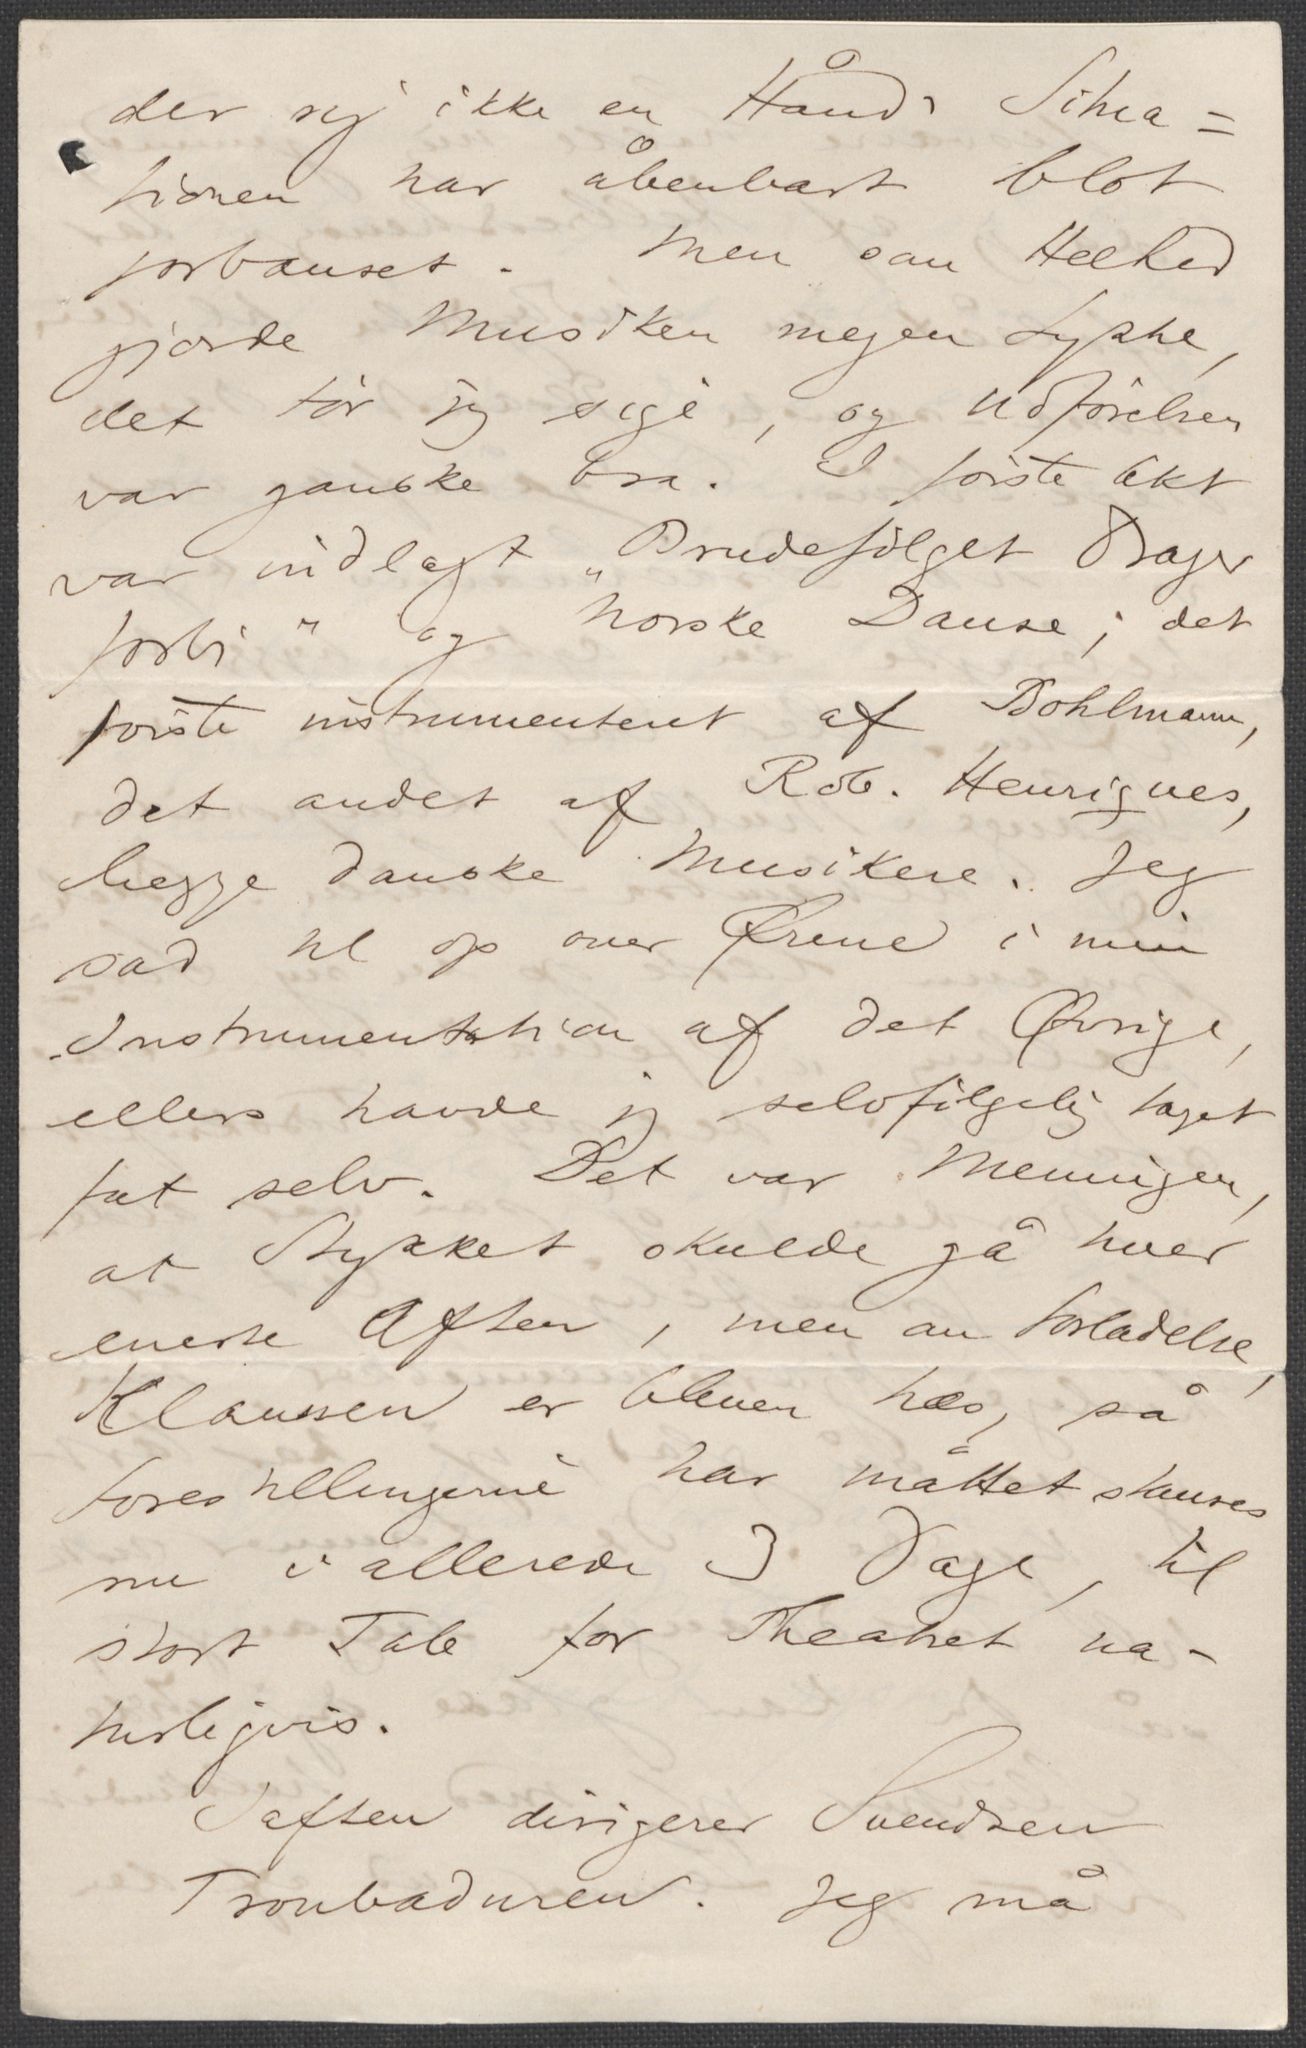 der sig ikke en Hånd. Situa=
tionen har åbenbart blot
forbauset. Men som Helhed
gjorde Musiken megen Lykke,
det tör jeg sige, og Udförelsen
var ganske bra. I förste Akt
var indlagt „Brudefölget drager
forbi" og norske Danse; det
förste instrumenteret af Bohlmann,
det andet af Rob. Henriques,
begge danske Musikere. Jeg
sad til op over Ørene i min
Instrumentation af det Øvrige,
ellers havde jeg selvfölgelig taget
fat selv. Det var Meningen,
at Stykket skulde gå hver
eneste Aften, men om Forladelse,
Klaussen er bleven hæs, så
Forestillingerne har måttet stanses
nu i allerede 3 Dage, til
stort Tab for Theatret na-
turligvis.
Iaften dirigerer Svendsen
Troubaduren. Jeg må